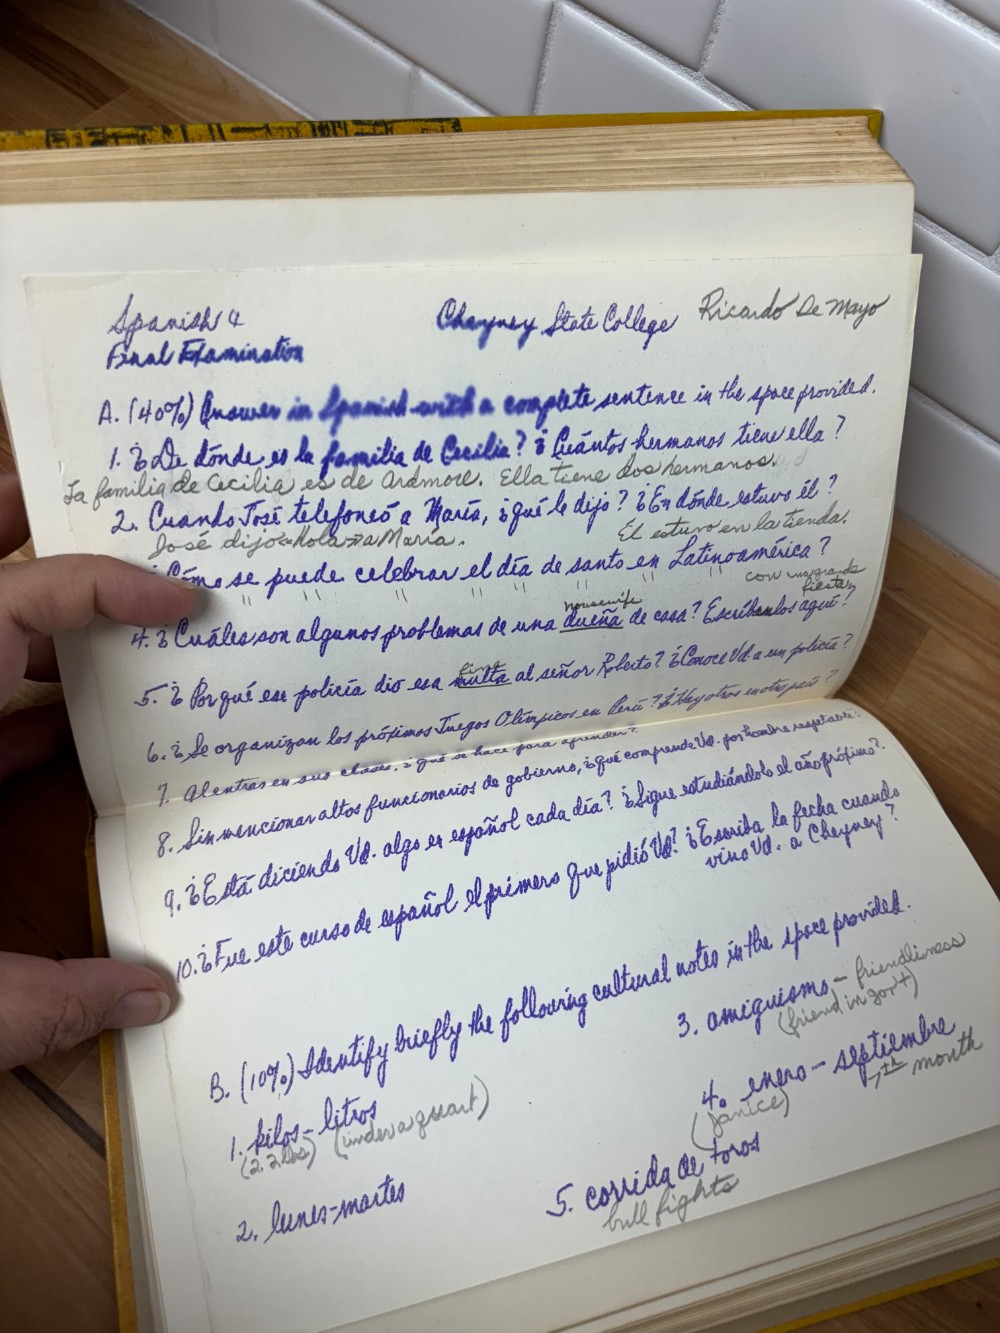 Spanish 4 Cheyney State College Ricardo De Mayo
Final Examination
A. (40%) Answer in Spanish with a complete sentence in the space provided.
1. ¿De dónde es la familia de Cecilia? ¿Cuántos hermanos tiene ella?
La familia de Cecilia es de Ardmore. Ella tiene dos hermanos.
2. Cuando José telefoneó a María, ¿qué le dijo? ¿En dónde estuvo él?
José dijo «hola» a María. El estuvo en la tienda.
¿Cómo se puede celebrar el día de santo en Latinoamérica?
" " " " " " con una grande
fiesta
housewife
4. ¿Cuáles son algunos problemas de una dueña de casa? Escríbanlos aquí?
fine
5. ¿Por qué ese policía dio esa multa al señor Roberto? ¿Conoce Vd. a un policía?
6. ¿Se organizan los próximos Juegos Olímpicos en Perú? ¿Hay otros en otro país?
7. Mientras en sus clases, ¿qué se hace para aprender?
8. Sin mencionar altos funcionarios de gobierno, ¿qué comprende Vd. por hombre respetable?
9. ¿Está diciendo Vd. algo en español cada día? ¿Sigue estudiándolo el año próximo?
10. ¿Fue este curso de español el primero que pidió Vd.? ¿Escriba la fecha cuando
vino Vd. a Cheyney?
B. (10%) Identify briefly the following cultural notes in the space provided.
1. kilos - litros
(2.2 lbs) (under a quart)
2. lunes-martes
3. amiguismo - friendliness
(friend in gov't)
4. enero - septiembre
(Janice) 7th month
5. corrida de toros
bull fights